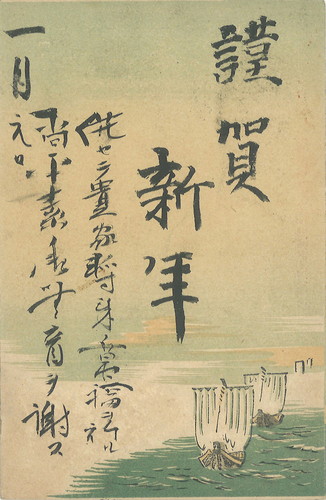 謹賀
新年
併セテ貴家将来ノ萬福ヲ祈ル
尚平素ノ御無音ヲ謝ス
一月
元旦